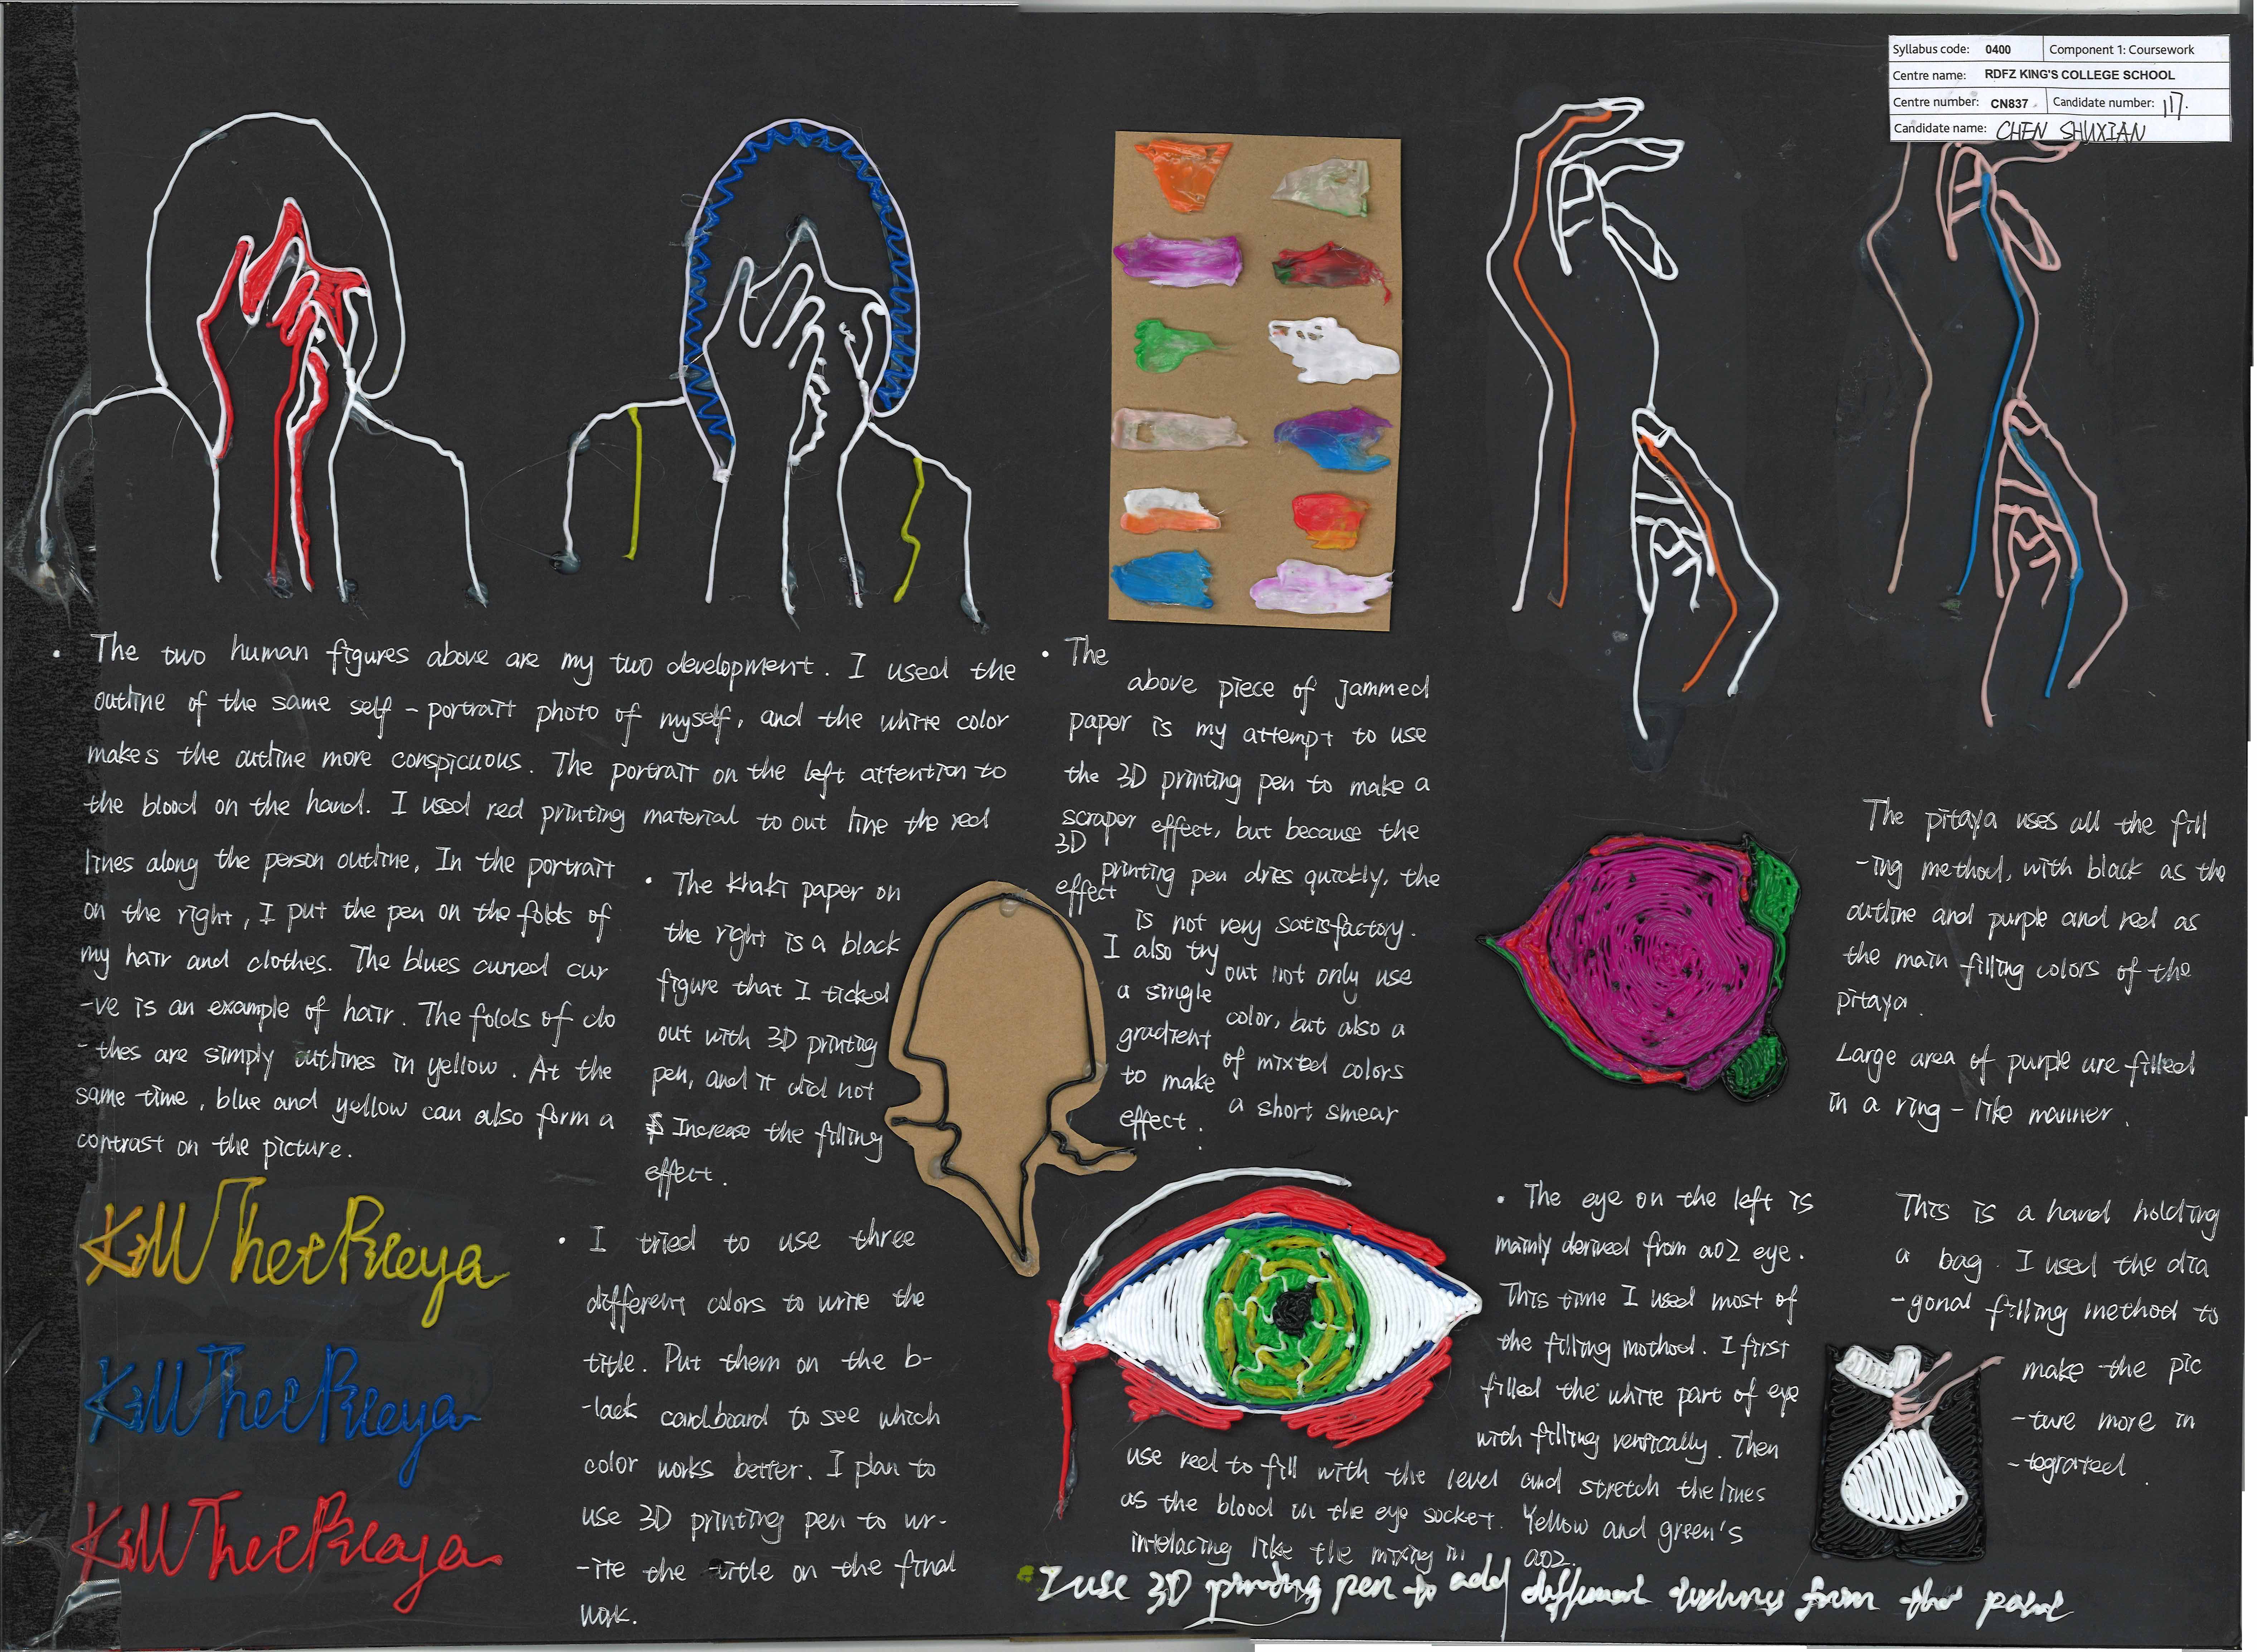 Syllabus code: 0400 Component 1: Coursework
Centre name: RDFZ KING'S COLLEGE SCHOOL
Centre number: CN837 Candidate number: 117.
Candidate name: CHEN SHUXIAN
• The two human figures above are my two development. I used the
outline of the same self-portrait photo of myself, and the white color
makes the outline more conspicuous. The portrait on the left attention to
the blood on the hand. I used red printing material to out line the red
lines along the person outline, In the portrait
on the right, I put the pen on the folds of
my hair and clothes. The blues curved cur
-ve is an example of hair. The folds of clo
-thes are simply outlines in yellow. At the
same time, blue and yellow can also form a
contrast on the picture.
• The khaki paper on
the right is a black
figure that I ticked
out with 3D printing
pen, and it did not
Increase the filling
effect.
• The
above piece of jammed
paper is my attempt to use
the 3D printing pen to make a
scraper effect, but because the
3D
printing pen dries quickly, the
effect
is not very satisfactory.
I also try
out not only use
a single
color, but also a
gradient
of mixed colors
to make
a short smear
effect.
The pitaya uses all the fill
-ing method, with black as the
outline and purple and red as
the main filling colors of the
pitaya.
Large area of purple are filled
in a ring-like manner.
Kill
• I tried to use three
different colors to write the
title. Put them on the b-
-lack cardboard to see which
color works better. I plan to
use 3D printing pen to wr-
-ite the title on the final
work.
• The eye on the left is
mainly derived from a02 eye.
This time I used most of
the filling mothod. I first
filled the white part of eye
with filling vertically. Then
use reel to fill with the level and stretch the lines
as the blood in the eye socket. Yellow and green's
intelacing like the mixing in a02.
This is a hand holding
a bag. I used the dia
-gonal filling method to
make the pic
-ture more in
-tegrated.
I use 3D printing pen to add different from the